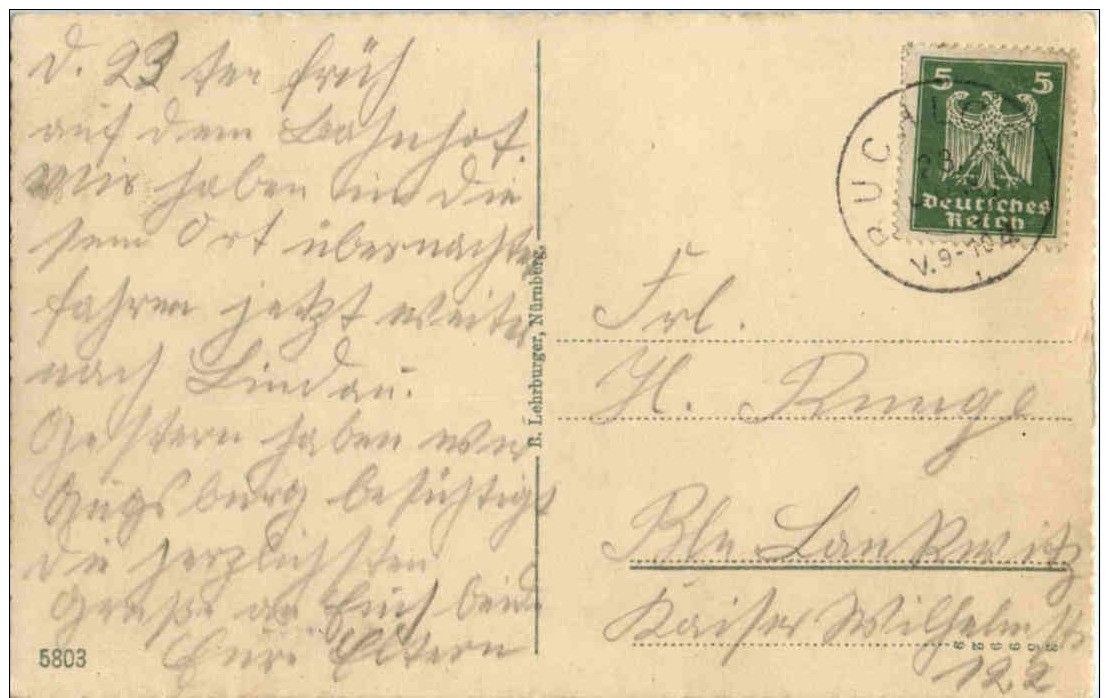 d. 23 ten früh
auf dem Bahnhof.
Wir haben in die
sem Ort übernachtet
fahren jetzt weiter
nach Lindau.
Gestern haben wir
Augsburg besichtigt
die herzlichsten
Grüße an Euch beide
Eure Eltern
5803
R. Lehrburger, Nürnberg.
5 5
Deutsches
Reich
V. 9-10
Frl.
H. Runge
Bln Lankwitz
Kaiser Wilhelm St.